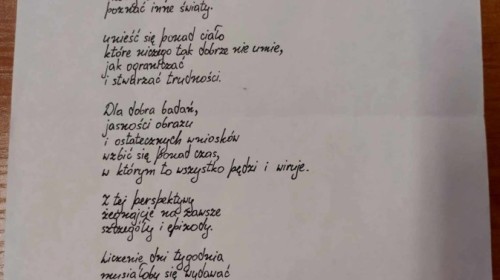 poznać inne światy.
unieść się ponad ciało
które niczego tak dobrze nie umie,
jak ograniczać
i stwarzać trudności.
Dla dobra badań,
jasności obrazu
i ostatecznych wniosków
wzbić się ponad czas,
w którym to wszystko pędzi i wiruje.
Z tej perspektywy
żegnajcie na zawsze
szczegóły i epizody.
Liczenie dni tygodnia
musiałoby się wydawać